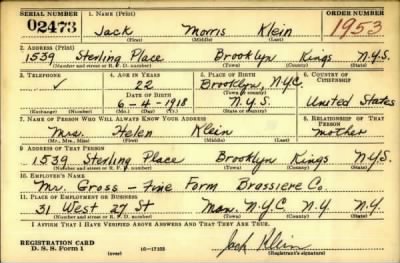 SERIAL NUMBER
1. NAME (Print)
ORDER NUMBER
02473
Jack Morris Klein
1953
(First) (Middle) (Last)
2. ADDRESS (Print)
1539 Sterling Place Brooklyn Kings N.Y.S.
(Number and street or R. F. D. number) (Town) (County) (State)
3. TELEPHONE
4. AGE IN YEARS
5. PLACE OF BIRTH
6. COUNTRY OF CITIZENSHIP
✓
22
Brooklyn, N.Y.C.
DATE OF BIRTH
(Town or county)
6-4-1918
N.Y.S.
United States
(Exchange) (Number)
(Mo.) (Day) (Yr.)
(State or country)
7. NAME OF PERSON WHO WILL ALWAYS KNOW YOUR ADDRESS
8. RELATIONSHIP OF THAT PERSON
Mrs. Helen Klein
mother
(Mr., Mrs., Miss) (First) (Middle) (Last)
9. ADDRESS OF THAT PERSON
1539 Sterling Place Brooklyn Kings N.Y.S.
(Number and street or R. F. D. number) (Town) (County) (State)
10. EMPLOYER'S NAME
Mr. Gross - Fine Form Brassiere Co
11. PLACE OF EMPLOYMENT OR BUSINESS
31 West 27 St Man. N.Y.C N.Y. N.Y.
(Number and street or R. F. D. number) (Town) (County) (State)
I AFFIRM THAT I HAVE VERIFIED ABOVE ANSWERS AND THAT THEY ARE TRUE.
REGISTRATION CARD
D. S. S. Form 1
(over)
16-17105
Jack Klein
(Registrant's signature)